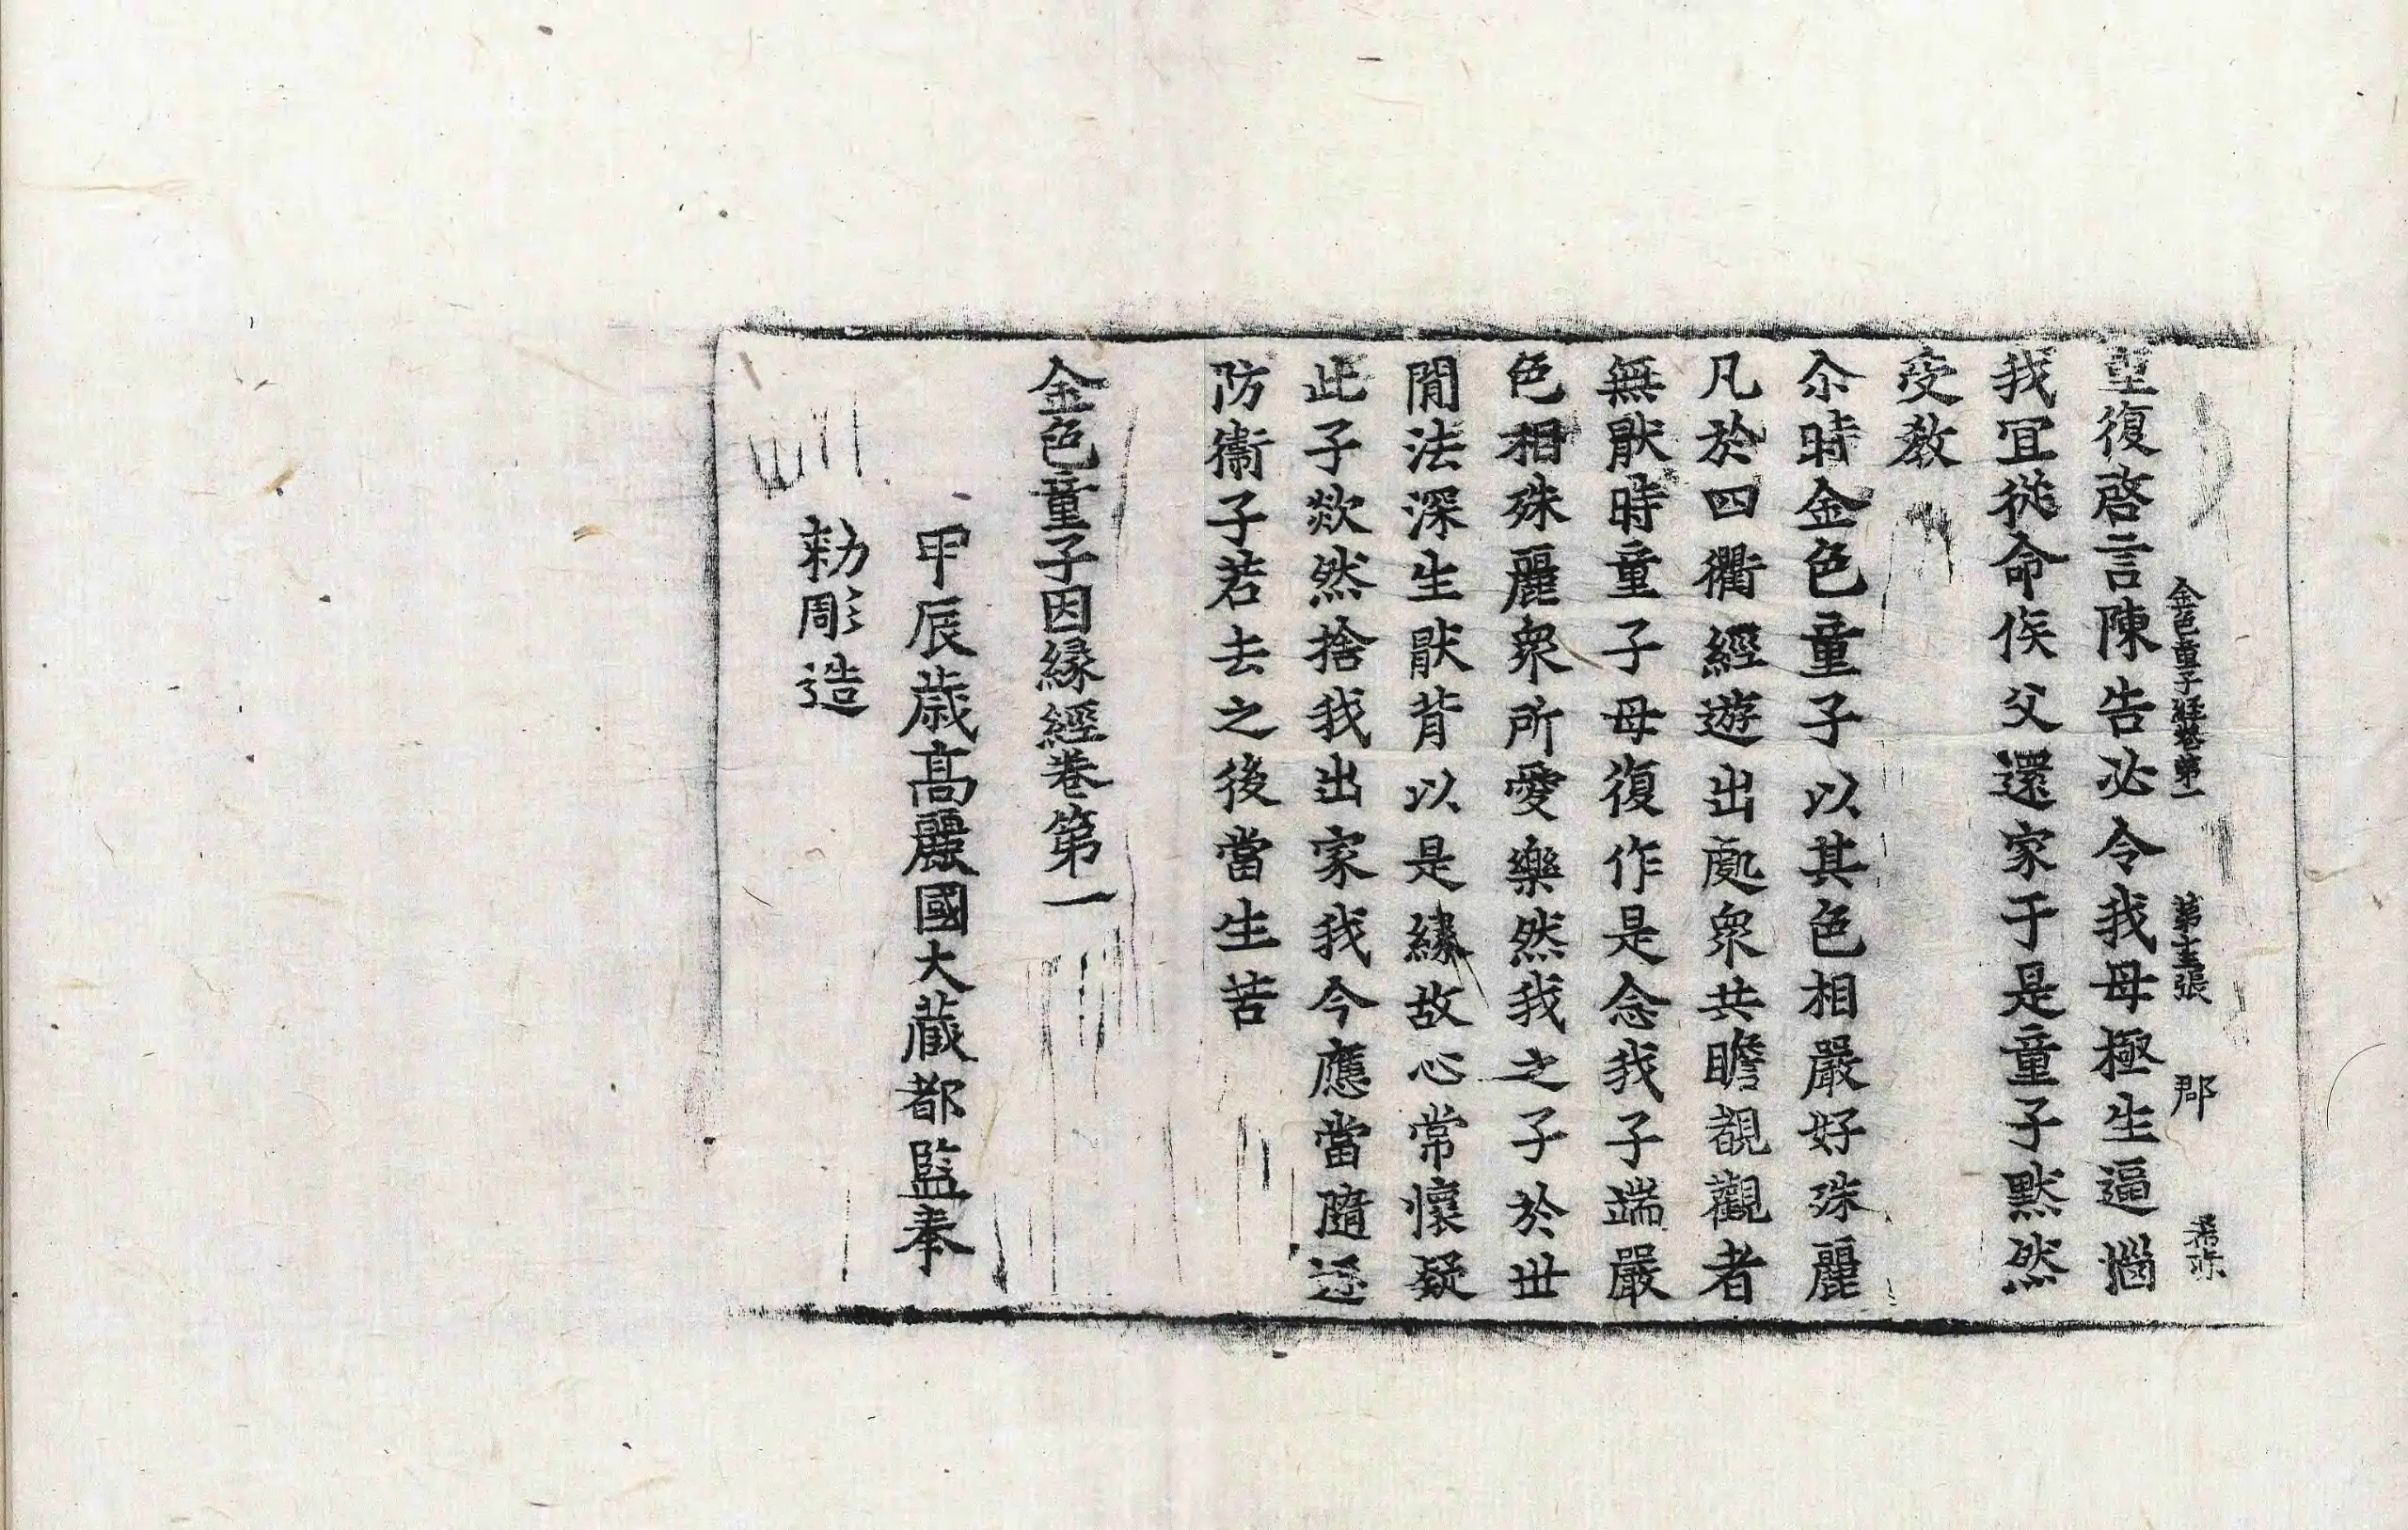 金色童子經卷第一 第十二張 郡
重復啓言陳告必令我母極生逼惱
我冝從命俟父還家于是童子默然
受教
尒時金色童子以其色相嚴好殊麗
凡於四衢經遊出處衆共瞻覩觀者
無猒時童子母復作是念我子端嚴
色相殊麗衆所愛樂然我之子於丗
聞法深生猒背以是緣故心常懷疑
此子欻然捨我出家我今應當隨逐
防衛子若去之後當生苦
金色童子因緣經卷第一
甲辰歳高麗國大蔵都監奉
勑彫造